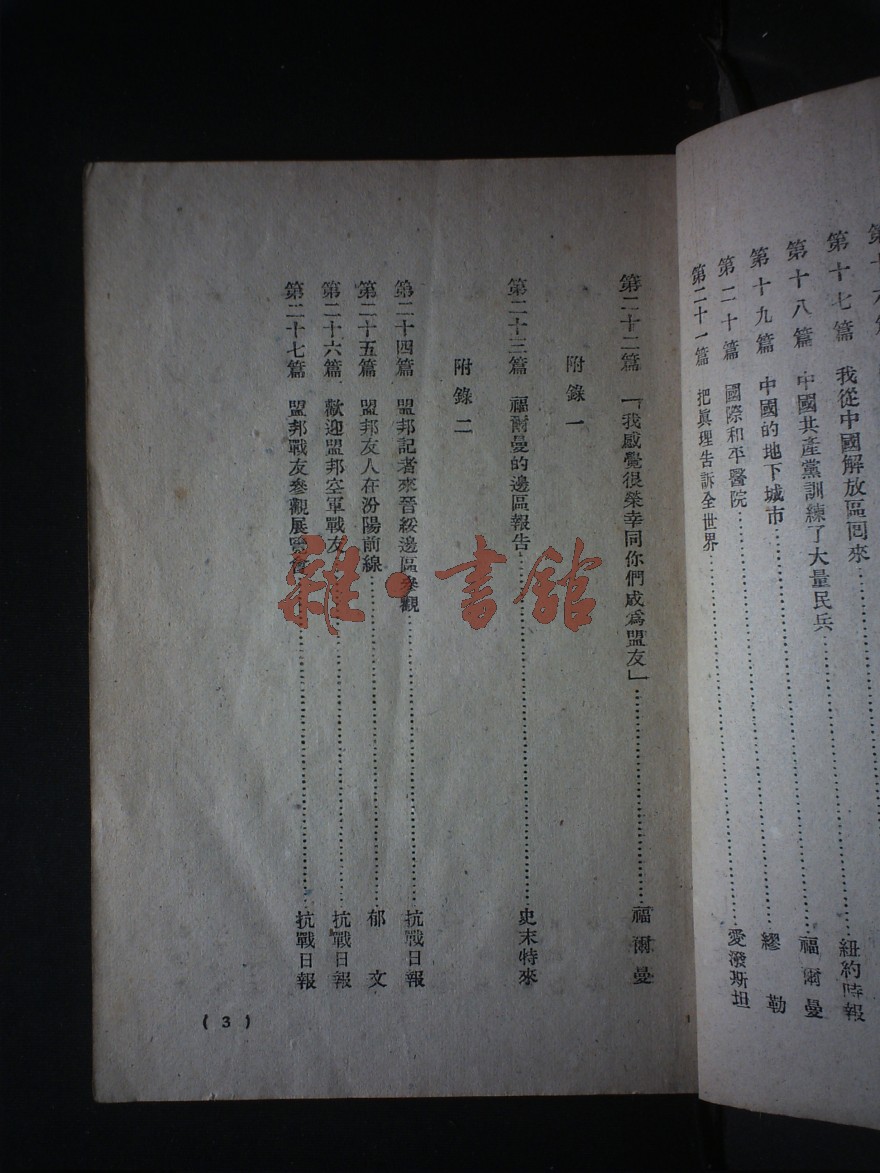 第十六篇
第十七篇 我從中國解放區囘來……紐約時報
第十八篇 中國共產黨訓練了大量民兵……福爾曼
第十九篇 中國的地下城市……繆勒
第二十篇 國際和平醫院……愛潑斯坦
第二十一篇 把眞理告訴全世界……
第二十二篇 「我感覺很榮幸同你們成爲盟友」……福爾曼
附錄一
第二十三篇 福爾曼的邊區報告……史末特來
附錄二
第二十四篇 盟邦記者來晉綏邊區參觀……抗戰日報
第二十五篇 盟邦友人在汾陽前線……郁文
第二十六篇 歡迎盟邦空軍戰友……抗戰日報
第二十七篇 盟邦戰友參觀展覽會……抗戰日報
(3)
雜·書舘